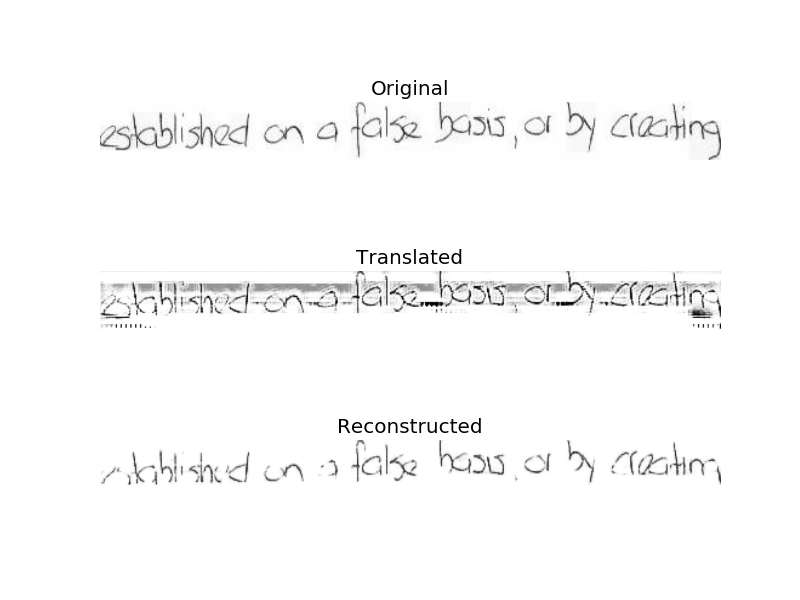 Original
established on a false basis, or by creating
Translated
established on a false basis, or by creating
Reconstructed
established on a false basis, or by creating